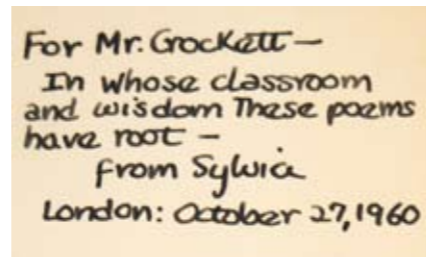 For Mr. Crockett —
In whose classroom
and wisdom These poems
have root —
from Sylvia
London: October 27, 1960